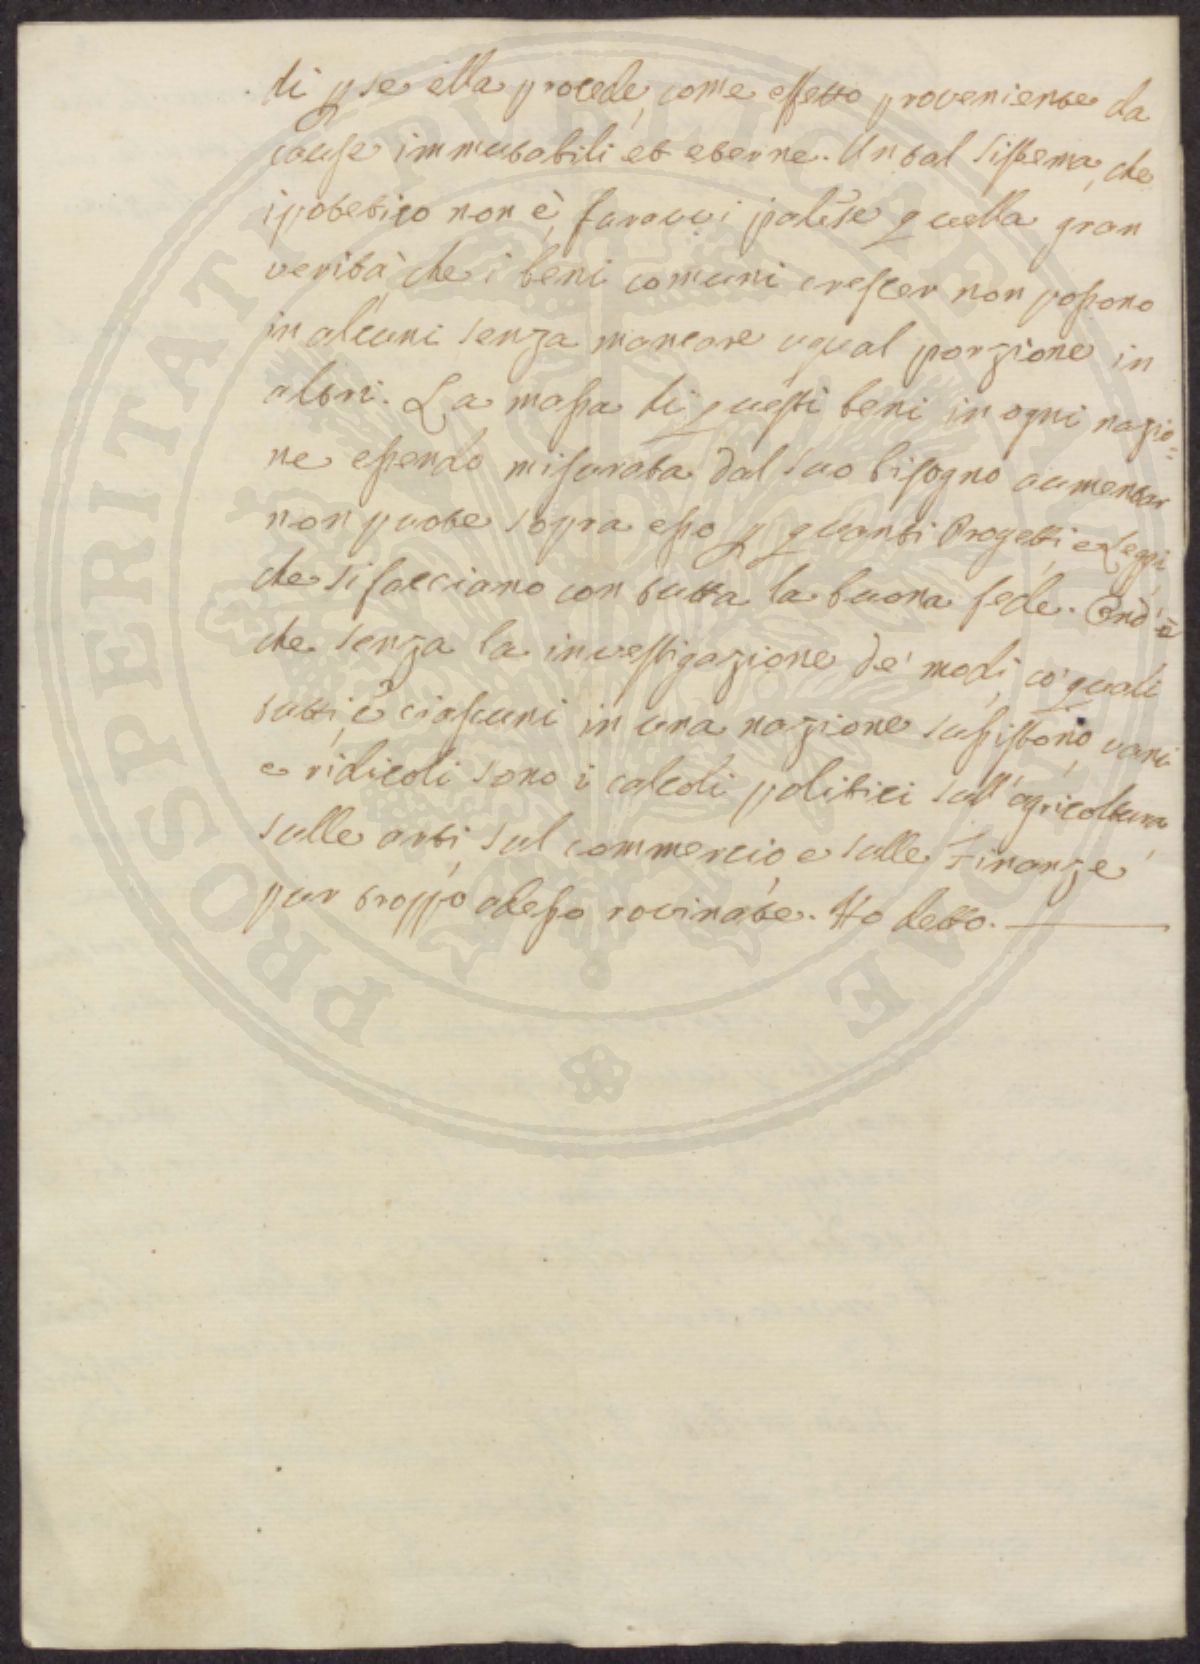 di p se ella procede, come effetto proveniente da
cause immutabili et eterne. Un tal sistema, che
ipotetico non è, faravvi palese quella gran
verità che i beni comuni crescer non possono
in alcuni senza mancare ugual porzione in
altri. La massa di questi beni in ogni nazio=
ne essendo misurata dal suo bisogno aumentar
non puote sopra esso p quanti Progetti, e Leggi
che si facciano con tutta la buona fede. Ond'è
che senza la investigazione de' modi, co' quali
tutti, e ciascuni in una nazione sussistono, vani
e ridicoli sono i calcoli politici sull'agricoltura,
sulle arti, sul commercio, e sulle Finanze
pur troppo adesso rovinate. Ho detto.
PROSPERITATI PUBLICAE AUGENDAE